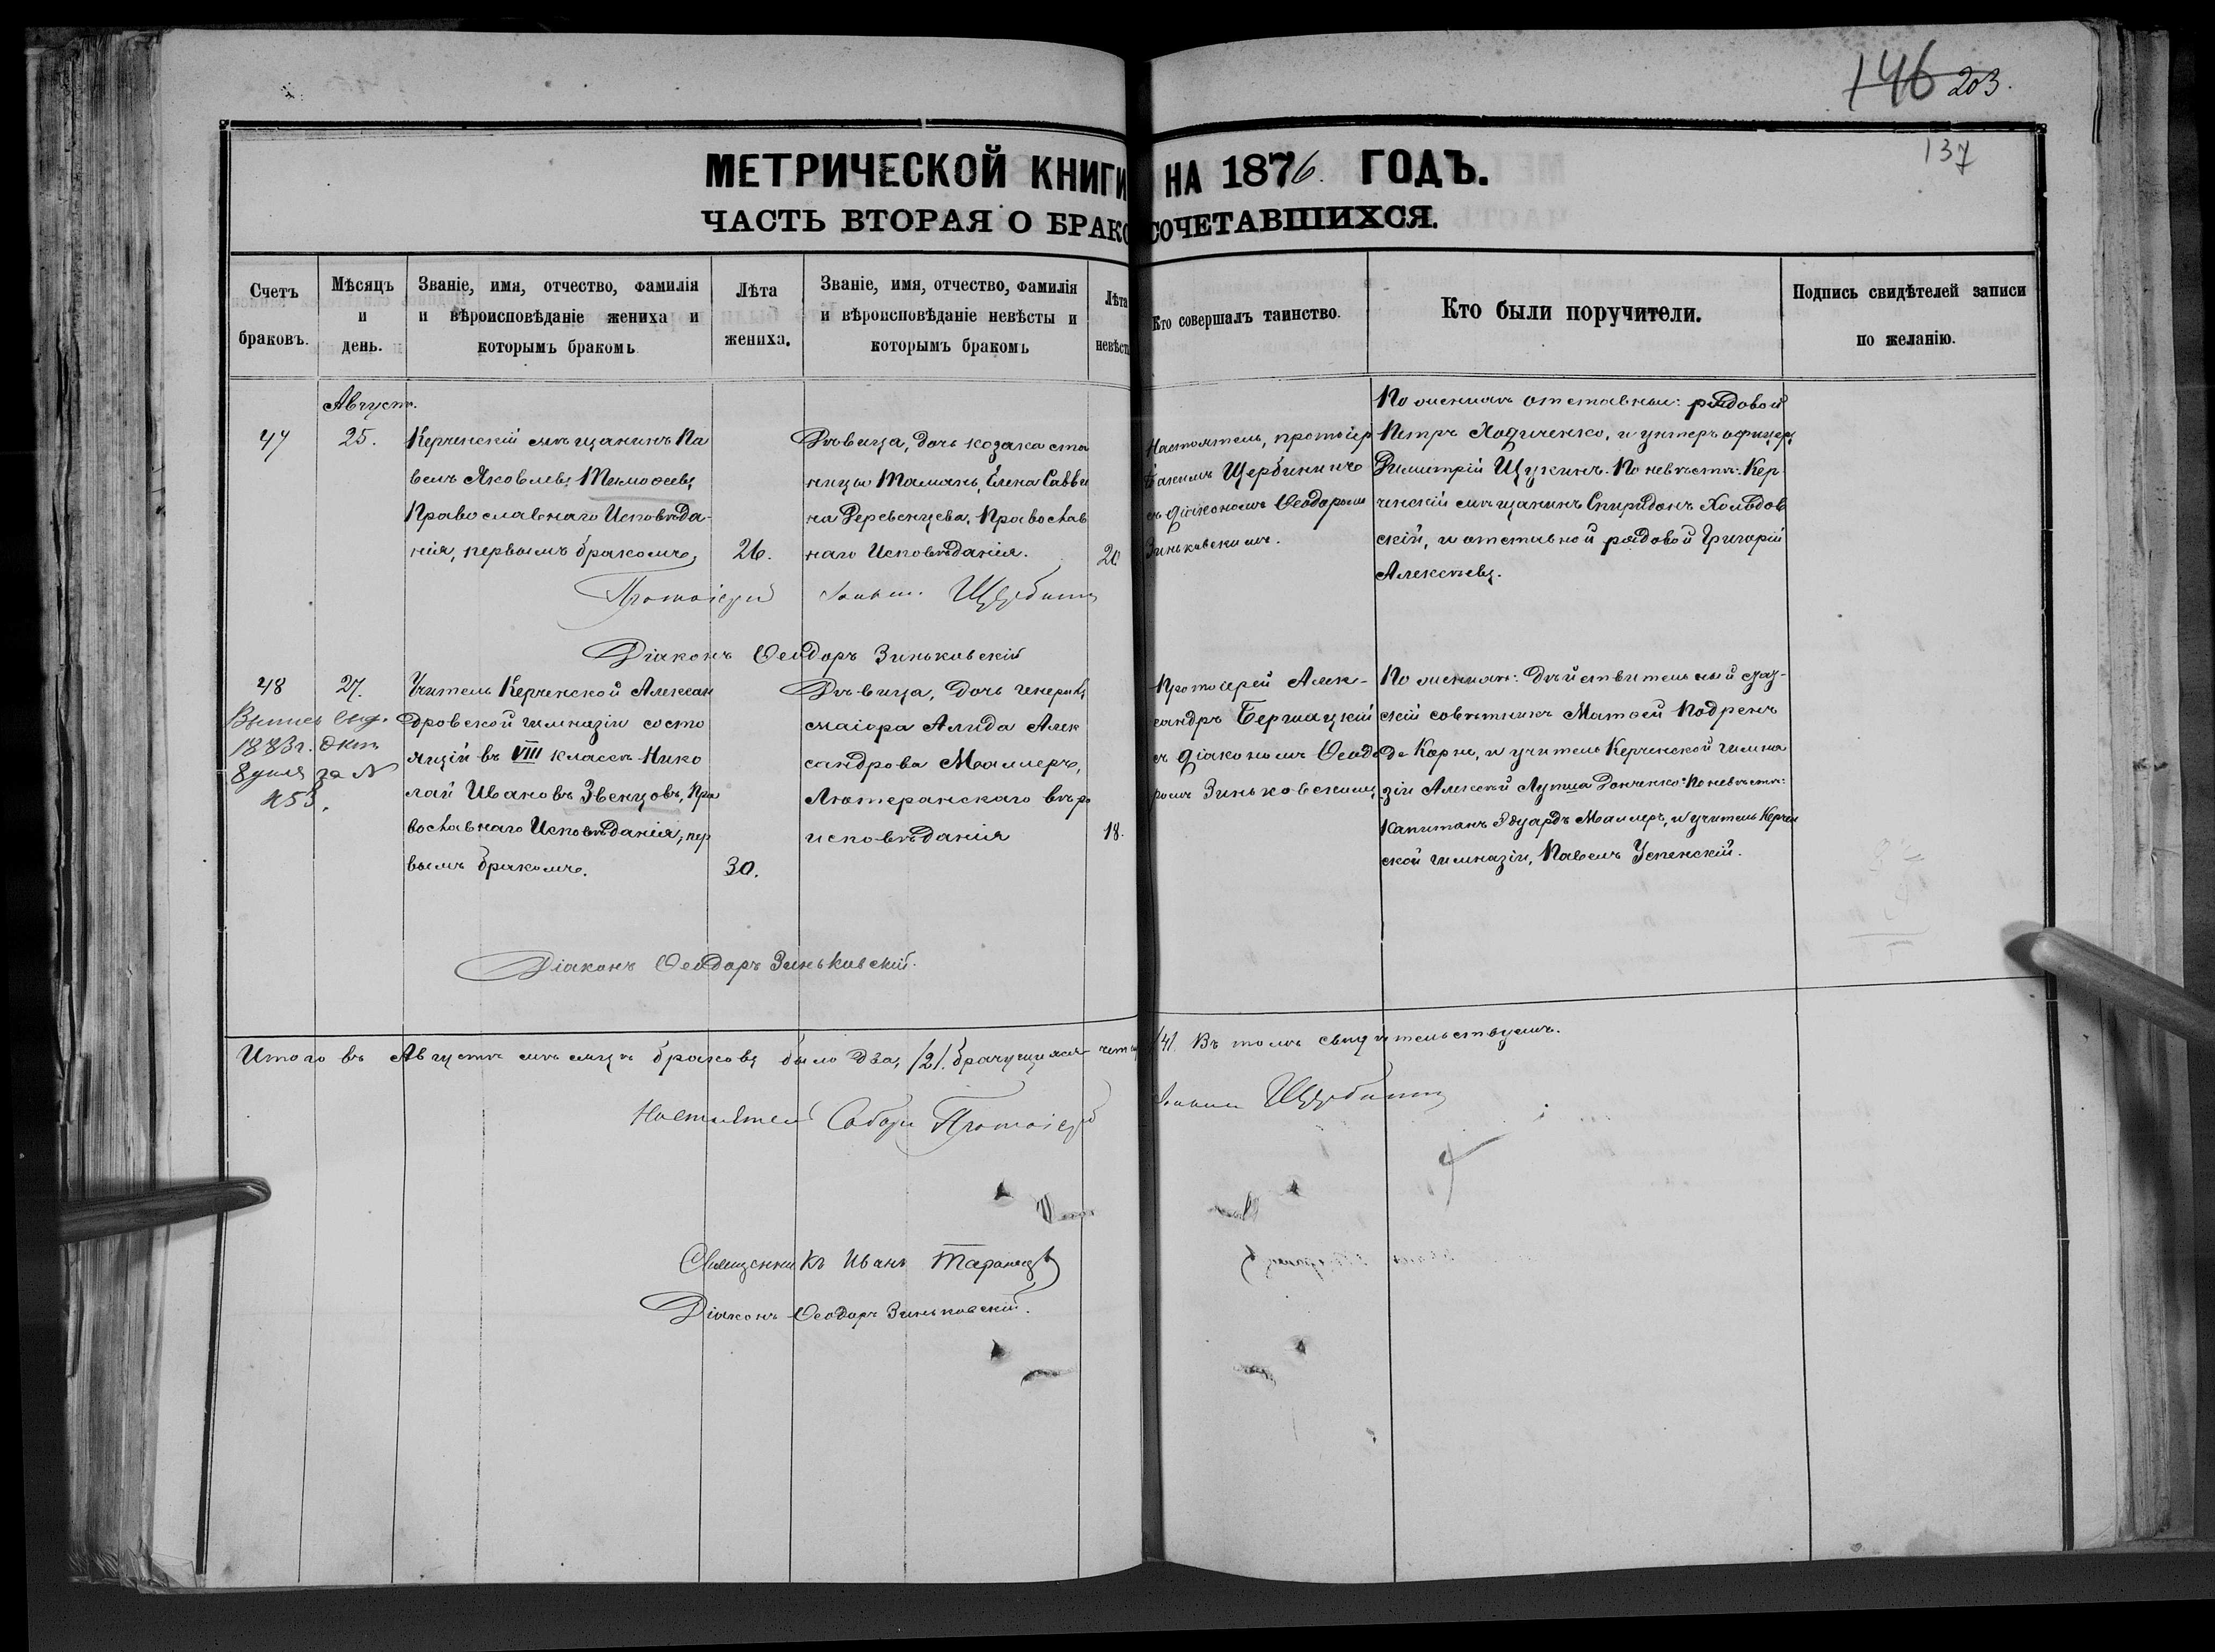 146 203.
137
МЕТРИЧЕСКОЙ КНИГИ НА 1876. ГОДЪ.
ЧАСТЬ ВТОРАЯ О БРАКОСОЧЕТАВШИХСЯ.
Счетъ браковъ.
Мѣсяцъ и день.
Званіе, имя, отчество, фамилія
и вѣроисповѣданіе жениха и
которымъ бракомъ
Лѣта жениха.
Званіе, имя, отчество, фамилія
и вѣроисповѣданіе невѣсты и
которымъ бракомъ
Лѣта невѣсты
Кто совершалъ таинство.
Кто были поручители.
Подпись свидѣтелей записи
по желанію.
Августъ.
47
25.
Керченскій мѣщанинъ Па
велъ Яковлевъ Тимоѳеевъ,
Православнаго Исповѣда-
нія, первымъ бракомъ,
26.
Дѣвица, дочь козака ста
ницы Тамань, Елена Савви
на Деревенцева, Православ
наго Исповѣданія.
20
Настоятель, протоіер
Іоакимъ Щербининъ
съ діакономъ Ѳеодоромъ
Зиньковскимъ.
По женихѣ отставные: рядовой
Петръ Ходиченко, и унтеръ офицеръ
Димитрій Щукинъ. По невѣстѣ: Кер
ченскій мѣщанинъ Спиридонъ Холодов
скій, и отставной рядовой Григорій
Алексѣевъ.
Протоіерей Іоаким Щербининъ
Діаконъ Ѳеодоръ Зиньковскій
48
27.
Выпись выд.
1883г. Окт
8 дня за №
453.
Учитель Керченской Алексан
дровской гимназіи состо
ящій въ VIII классѣ Нико
лай Ивановъ Звенцовъ, Пра
вославнаго Исповѣданія, пер
вымъ бракомъ.
30.
Дѣвица, дочь генералъ
маіора Алида Алек
сандрова Маллеръ,
Лютеранскаго вѣро
исповѣданія
18.
Протоіерей Алек-
сандръ Бершацкій
съ діакономъ Ѳеодо
ромъ Зиньковскимъ
По женихѣ: дѣйствительный стат-
скій совѣтникъ Матѳей Подренъ
де Карне, и учитель Керченской гимна
зіи Алексѣй Донченко. По невѣстѣ:
Капитанъ Эдуардъ Маллеръ, и учитель Керчен
ской гимназіи, Павелъ Успенскій.
Діаконъ Ѳеодоръ Зиньковскій.
Итого въ Августѣ мѣсяцѣ браковъ было два, /2/. брачущихся четыре /4/. Въ томъ свидѣтельствуемъ.
Настоятель Собора Протоіерей Іоаким Щербининъ
Священникъ Иванъ Таранецъ
Діаконъ Ѳеодоръ Зиньковскій.